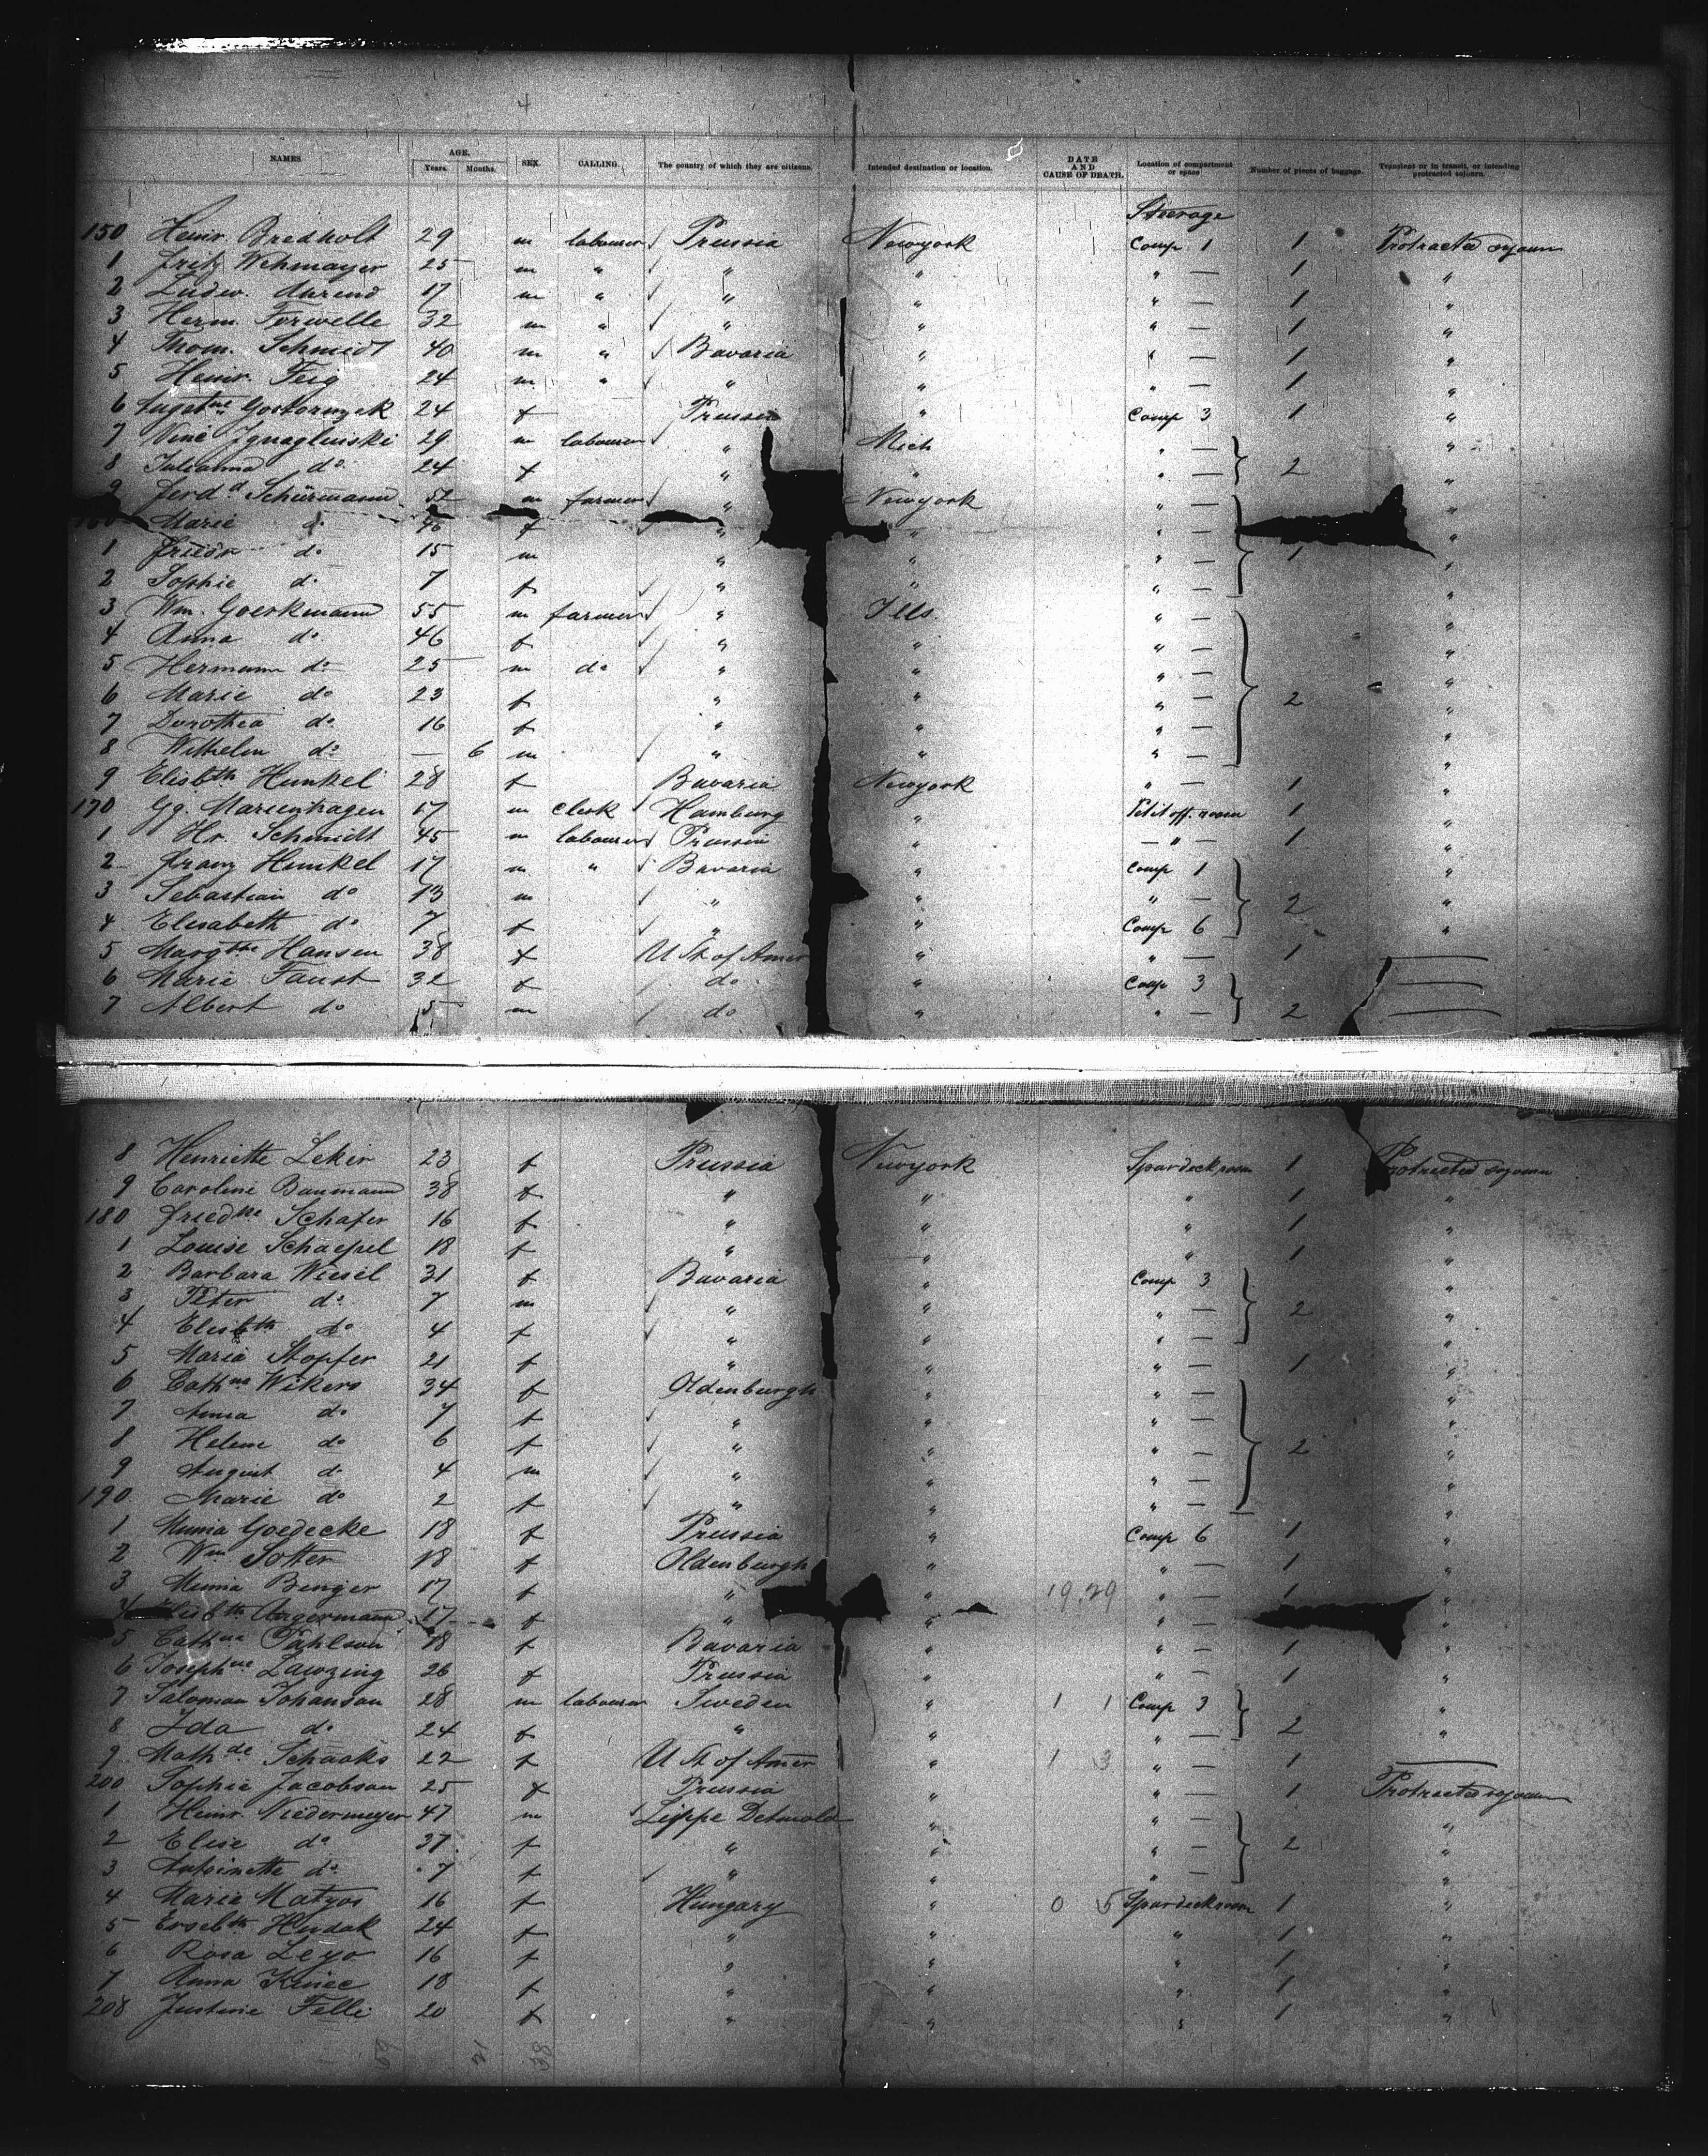 4
NAMES. AGE. Years. Months. SEX. CALLING. The country of which they are citizens. Intended destination or location. DATE AND CAUSE OF DEATH. Location of compartment or space Number of pieces of baggage. Transient or in transit, or intending protracted sojourn
Steerage
150 Heinr. Bredholt 29 m labourer Prussia Newyork Comp 1 1 Protracted sojourn
1 Fritz Wehmayer 25 m " " " " — 1 "
2 Ludw. Ahrend 17 m " " " " — 1 "
3 Herm. Forwelle 32 m " " " " — 1 "
4 Thom. Schmidt 40 m " Bavaria " " — 1 "
5 Heinr. Feig 24 m " " " " — 1 "
6 24 f Prussia " Comp 3 1 "
7 29 m labourer " Mich " — "
8 Julianna do 24 f " " " — 2 "
9 Ferdd Schürmann 52 m farmer " Newyork " — "
160 Marie do 46 f " " " — "
1 Friedr do 15 m " " " — 1 "
2 Sophie do 7 f " " " — "
3 Wm. Goerkmann 55 m farmer " Ills. " — "
4 Anna do 46 f " " " — "
5 Hermann do 25 m do " " " — "
6 Marie do 23 f " " " — 2 "
7 Dorothea do 16 f " " " — "
8 Wilhelm do — 6 m " " " — "
9 Elisbth Hunkel 28 f Bavaria Newyork " — 1 "
170 Gg. Marienhagen 17 m clerk Hamburg " Petit off. room 1 "
1 Hr. Schmidt 45 m labourer Prussia " — " — 1 "
2 Franz Hunkel 17 m " Bavaria " Comp 1 "
3 Sebastian do 13 m " " " — 2 "
4 Elisabeth do 7 f " " Comp 6 "
5 Margthe Hansen 38 f U St of Amer " " — 1 —
6 Marie Faust 32 f do " Comp 3 —
7 Albert do 5 m do " " — 2 —
8 Henriette Leker 23 f Prussia Newyork Spardeckroom 1 Protracted sojourn
9 Caroline Baumann 38 f " " " 1 "
180 Friedke Schafer 16 f " " " 1 "
1 Louise Schaepel 18 f " " " 1 "
2 Barbara Wiesel 31 f Bavaria " Comp 3 "
3 Peter do 7 m " " " — 2 "
4 Elisbth do 4 f " " " — "
5 Maria Stopfer 21 f " " " — 1 "
6 Cathne Wikers 34 f Oldenburgh " " — "
7 Anna do 7 f " " " — "
8 Helene do 6 f " " " — 2 "
9 August do 4 m " " " — "
190 Marie do 2 f " " " — "
1 Minna Goedecke 18 f Prussia " Comp 6 1 "
2 Wm Sotter 18 f Oldenburgh " " — 1 "
3 Minna Benjer 17 f " " 19.29 " — 1 "
4 Elisbth Angermann 17 f " " "
5 Cathne Pahlson 18 f Bavaria " " — 1 "
6 Josephne Lawzing 26 f Prussia " " — 1 "
7 Salomon Johanson 28 m labourer Sweden " 1 1 Comp 3 "
8 Ida do 24 f " " " — 2 "
9 Mathde Schaaks 22 f U St of Amer " 1 3 " — 1 —
200 Sophie Jacobson 25 f Prussia " " — 1 Protracted sojourn
1 Heinr. Niedermeyer 47 m Lippe Detmold " " — "
2 Elise do 37 f " " " — 2 "
3 Antoinette do 7 f " " " — "
4 Maria Matyos 16 f Hungary " 0 5 Spardeckroom 1 "
5 Ersebth Hudak 24 f " " " 1 "
6 Rosa Leyo 16 f " " " 1 "
7 Anna Kinec 18 f " " " 1 "
208 Justine Felli 20 f " " " 1 "
59 21 38